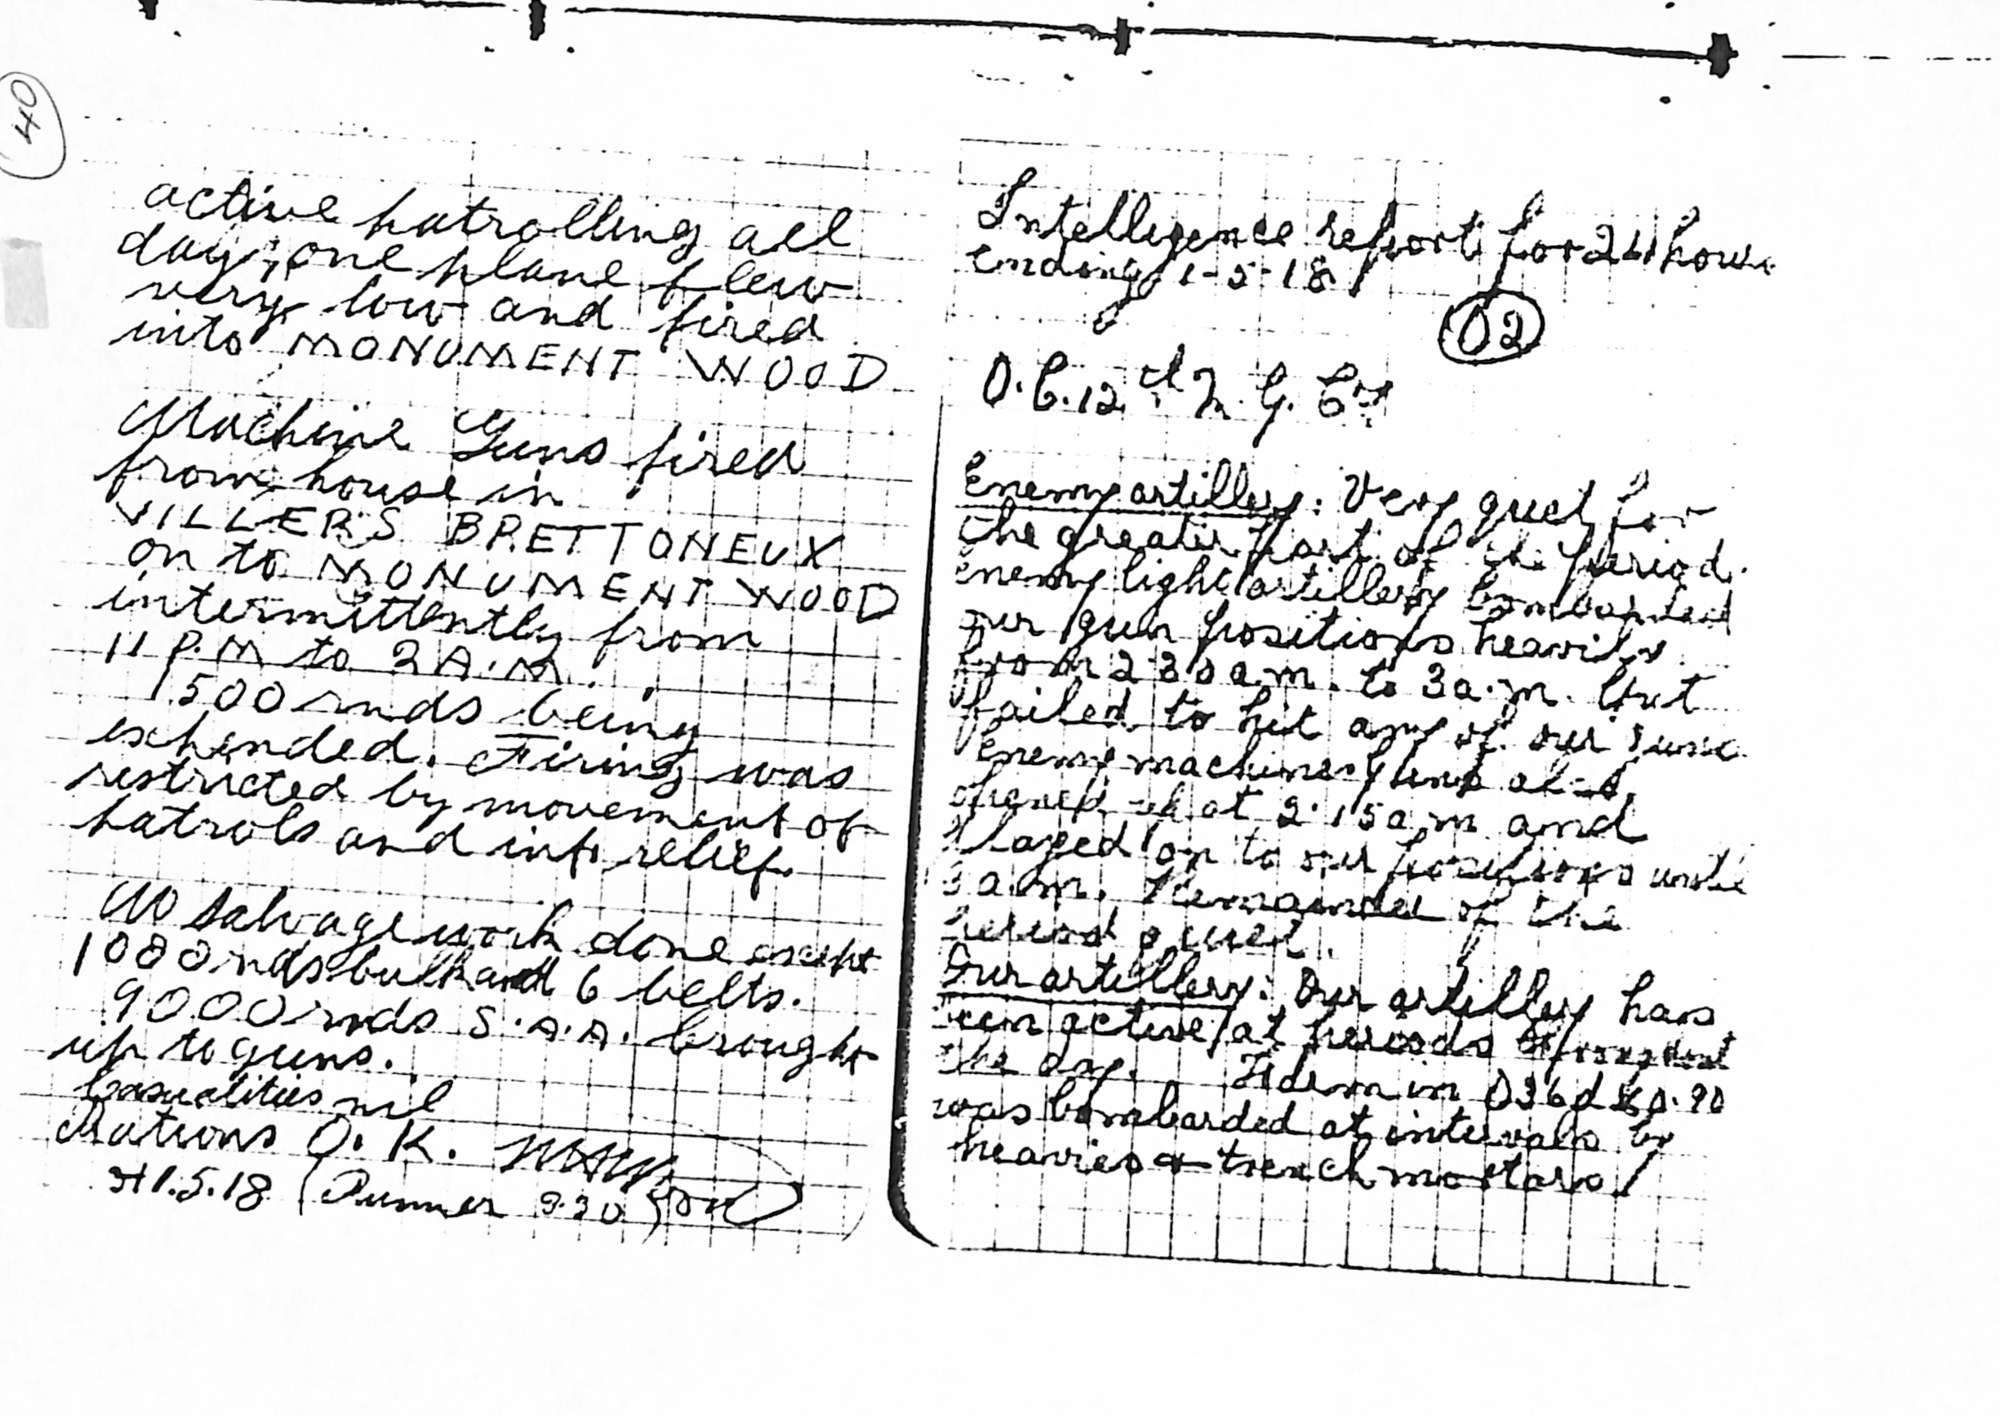 40
active patrolling all
day, one plane flew
very low and fired
into MONUMENT WOOD
Machine Guns fired
from house in
VILLERS BRETTONEUX
on to MONUMENT WOOD
intermittently from
11 P.M to 2 A.M.
1500 rnds being
expended. Firing was
restricted by movement of
patrols and inf. relief.
No salvage work done except
1080 rnds bulk and 6 belts.
9000 rnds S.A.A. brought
up to guns.
Casualities nil
Rations O.K.
1.5.18 (Runner 9.30
Intelligence report for 24 hours
ending 1-5-18
02
O.C. 12th M. G. Coy
Enemy artillery: Very quiet for
the greater part of the period.
Enemy light artillery bombarded
our gun positions heavily
from 2-30 a.m. to 3 a.m. but
failed to hit any of our guns
Enemy machine guns also
opened up at 2.15 a.m and
played on to our positions until
3 a.m. Remainder of the
period quiet.
Our artillery: Our artillery has
been active at periods throughout
the day. in O36d 60.90
was bombarded at intervals by
heavies & trench mortars